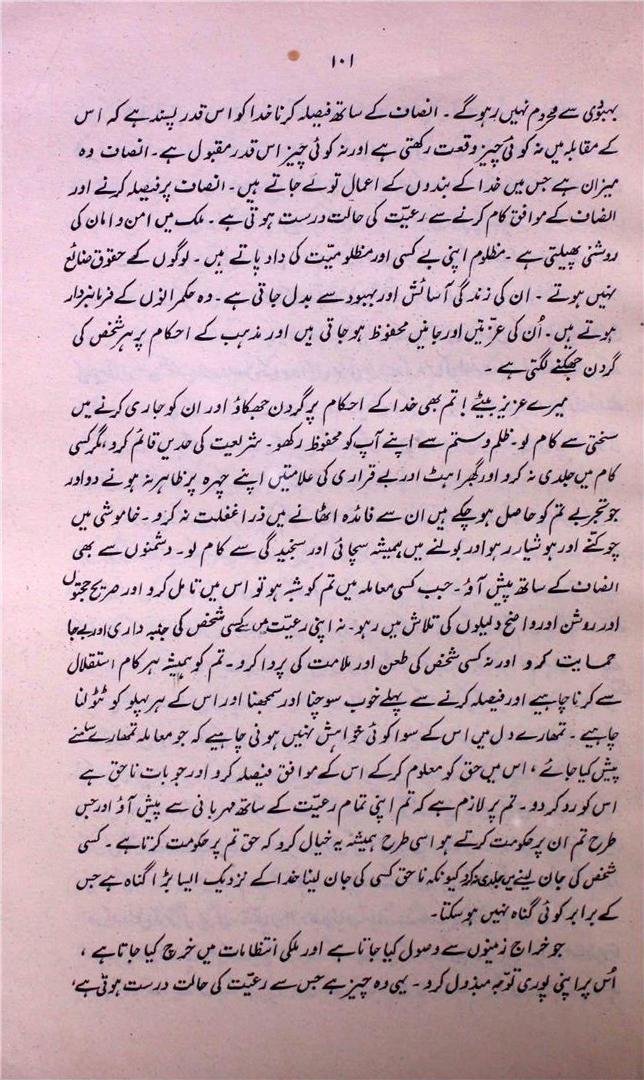 ۱۰۱
بہبودی سے محروم نہیں رہوگے ۔ انصاف کے ساتھ فیصلہ کرنا خدا کو اس قدر پسند ہے کہ اس
کے مقابلہ میں نہ کوئی چیز وقعت رکھتی ہے اور نہ کوئی چیز اس قدر مقبول ہے۔ انصاف وہ
میزان ہے جس میں خدا کے بندوں کے اعمال تولے جاتے ہیں۔ انصاف پر فیصلہ کرنے اور
انصاف کے موافق کام کرنے سے رعیّت کی حالت درست ہوتی ہے۔ ملک میں امن و امان کی
روشنی پھیلتی ہے ۔ مظلوم اپنی بے کسی اور مظلومیّت کی داد پاتے ہیں ۔ لوگوں کے حقوق ضائع
نہیں ہوتے ۔ ان کی زندگی آسائش اور بہبود سے بدل جاتی ہے۔ وہ حکمرانوں کے فرمانبردار
ہوتے ہیں۔ اُن کی عزتیں اور جانیں محفوظ ہو جاتی ہیں اور مذہب کے احکام پر ہر شخص کی
گردن جھکنے لگتی ہے ۔
میرے عزیز بیٹے ! تم بھی خدا کے احکام پر گردن جھکاؤ اور ان کو جاری کرنے میں
سختی سے کام لو۔ ظلم و ستم سے اپنے آپ کو محفوظ رکھو۔ شریعت کی حدیں قائم کرو، مگر کسی
کام میں جلدی نہ کرو اور گھبراہٹ اور بے قراری کی علامتیں اپنے چہرہ پر ظاہر نہ ہونے دو اور
جو تجربے تم کو حاصل ہوچکے ہیں ان سے فائدہ اٹھانے میں ذرا غفلت نہ کرو۔ خاموشی میں
چوکنّے اور ہوشیار رہو اور بولنے میں ہمیشہ سچائی اور سنجیدگی سے کام لو۔ دشمنوں سے بھی
انصاف کے ساتھ پیش آؤ۔ جب کسی معاملہ میں تم کو شبہ ہو تو اس میں تامل کرو اور صریح حجتوں
اور روشن اور واضح دلیلوں کی تلاش میں رہو۔ نہ اپنی رعیّت میں سے کسی شخص کی جنبہ داری اور بے جا
حمایت کرو اور نہ کسی شخص کی طعن اور ملامت کی پروا کرو۔ تم کو ہمیشہ ہر کام استقلال
سے کرنا چاہیے اور فیصلہ کرنے سے پہلے خوب سوچنا اور سمجھنا اور اس کے ہر پہلو کو ٹٹولنا
چاہیے ۔ تمھارے دل میں اس کے سوا کوئی خواہش نہیں ہونی چاہیے کہ جو معاملہ تمھارے سامنے
پیش کیا جائے ، اس میں حق کو معلوم کرکے اس کے موافق فیصلہ کرو اور جو بات ناحق ہے
اس کو رد کردو۔ تم پر لازم ہے کہ تم اپنی تمام رعیّت کے ساتھ مہربانی سے پیش آؤ اور جس
طرح تم ان پر حکومت کرتے ہو اسی طرح ہمیشہ یہ خیال کرو کہ حق تم پر حکومت کرتا ہے ۔ کسی
شخص کی جان لینے میں جلدی نہ کرو کیونکہ ناحق کسی کی جان لینا خدا کے نزدیک ایسا بڑا گناہ ہے جس
کے برابر کوئی گناہ نہیں ہوسکتا۔
جو خراج زمینوں سے وصول کیا جاتا ہے اور ملکی انتظامات میں خرچ کیا جاتا ہے ،
اُس پر اپنی پوری توجّہ مبذول کرو ۔ یہی وہ چیز ہے جس سے رعیّت کی حالت درست ہوتی ہے،